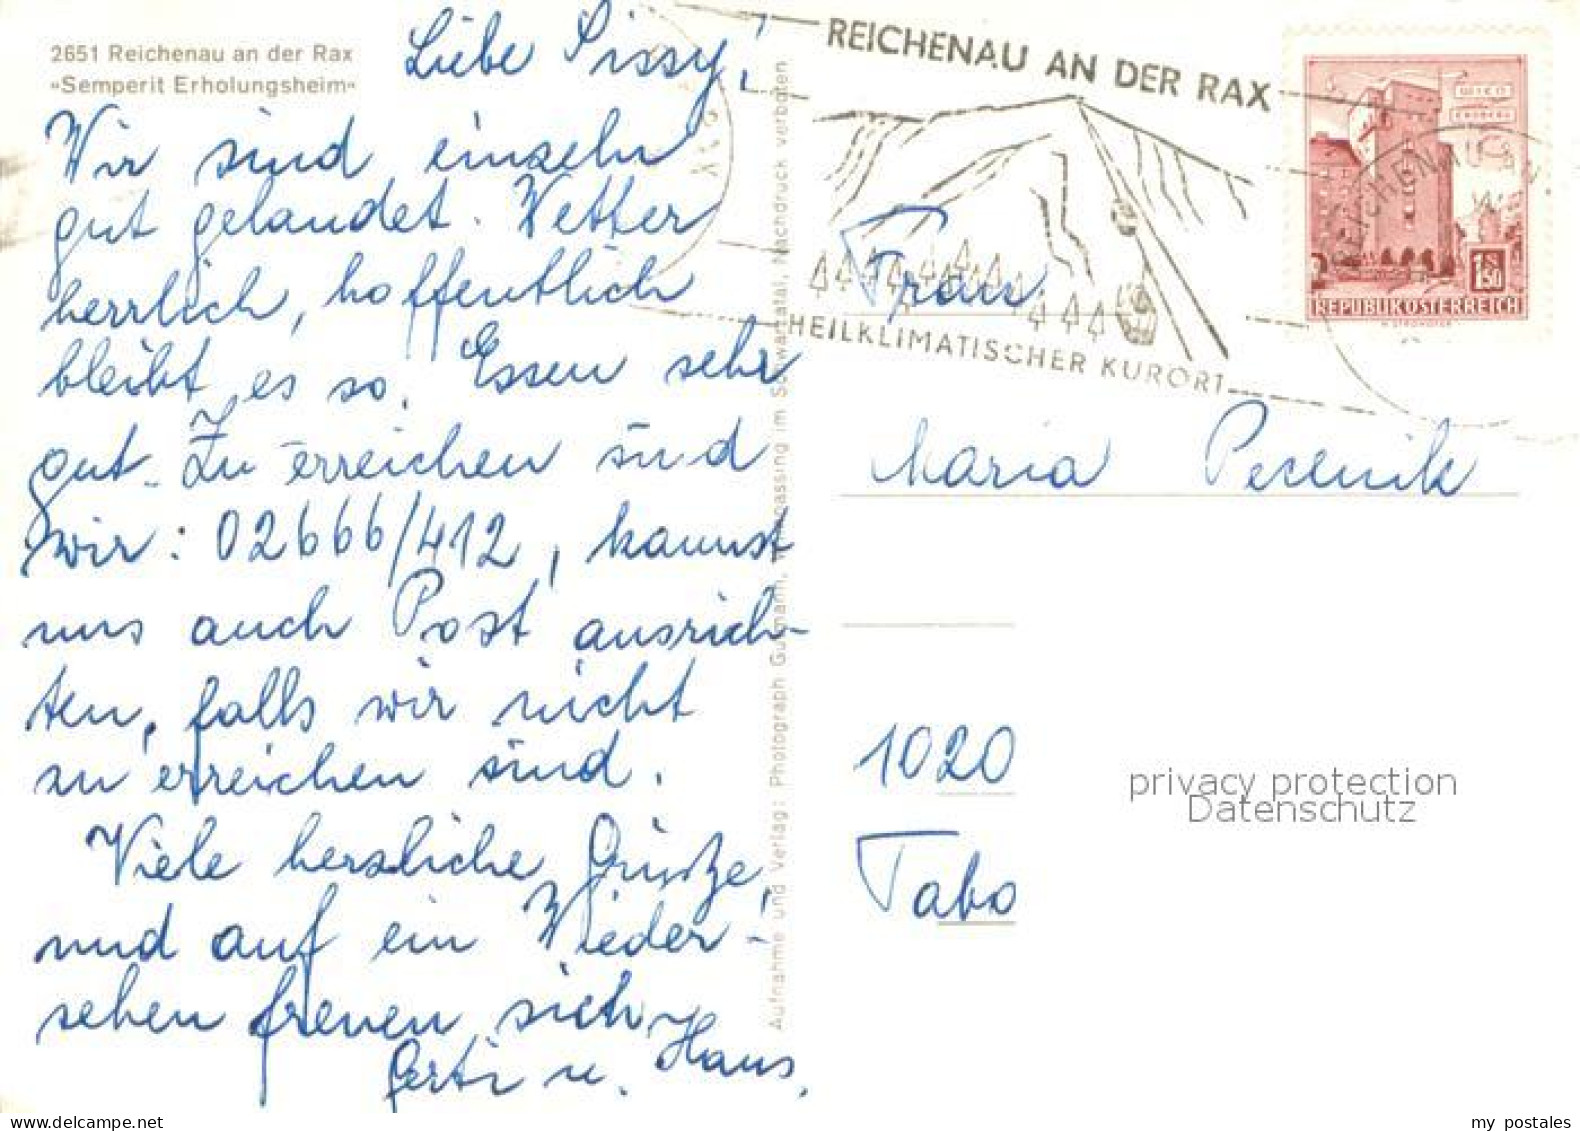 2651 Reichenau an der Rax
»Semperit Erholungsheim«
Liebe Sissy!
Wir sind einzeln
gut gelandet. Wetter
herrlich, hoffentlich
bleibt es so. Essen sehr
gut. Zu erreichen sind
wir: 02666/412, kannst
uns auch Post ausrich-
ten, falls wir nicht
zu erreichen sind.
Viele herzliche Grüße,
und auf ein Wieder-
sehen freuen sich
Gerti u. Hans.
Aufnahme und Verlag: Photograph Gutmann, Wimpassing im Schwarzatal, Nachdruck verboten
REICHENAU AN DER RAX
HEILKLIMATISCHER KURORT
REPUBLIK ÖSTERREICH
1S
1.50
Frau
Maria Pecenik
1020
Tabo
privacy protection
Datenschutz
my postales